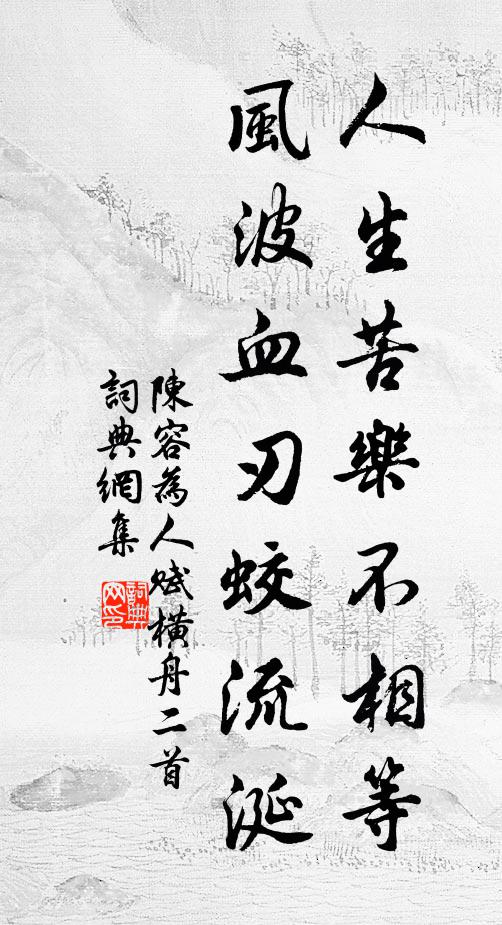 人生苦樂不相等
風波血刃蛟流涎
陳容為人賦橫舟二首
詞典網集
詞典网印